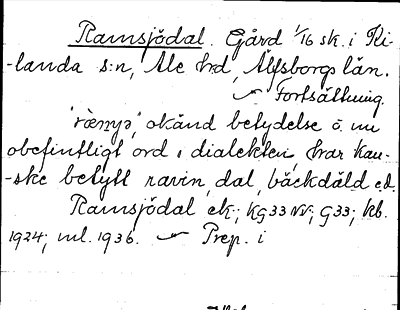 Ramsjödal. Gård 1/16 sk. i Ki-
-landa s:n, Ale hrd, Älfsborgs län.
Fortsättning.
okänd betydelse o. nu
obefintligt ord i dialekten, har kan-
-ske betytt ravin, dal, bäckdäld e.d.
Ramsjödal ek; KG33NV; G33; kb.
1924; ml. 1936. Prep. i